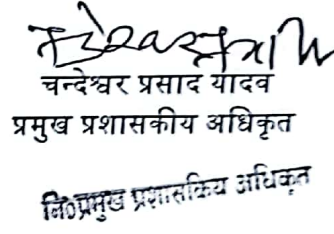 चन्देश्वर प्रसाद यादव
प्रमुख प्रशासकीय अधिकृत
नि०प्रमुख प्रशासकिय अधिकृत